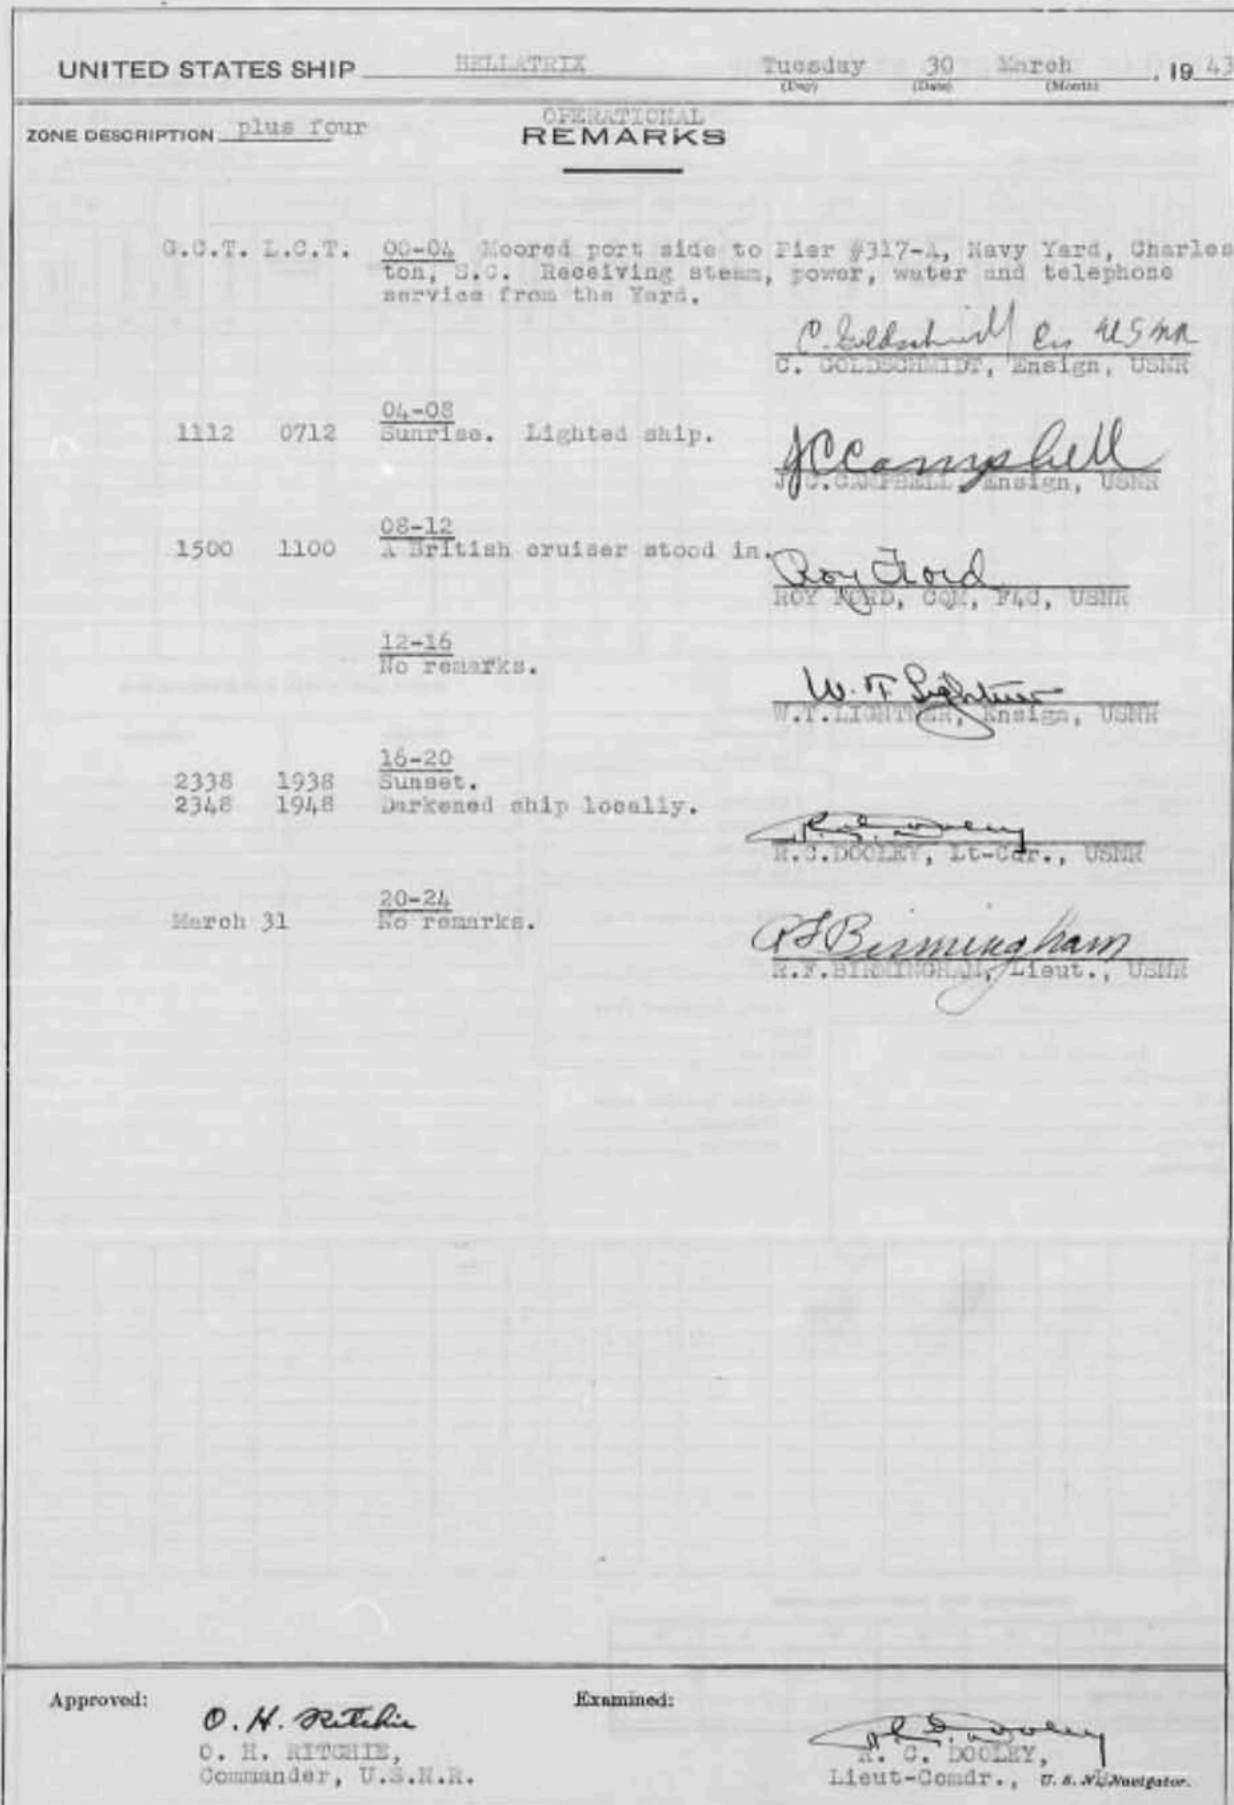 UNITED STATES SHIP BELLATRIX Tuesday 30 March, 19 43
(Day) (Date) (Month)
ZONE DESCRIPTION plus four OPERATIONAL
REMARKS
G.C.T. L.C.T. 00-04 Moored port side to Pier #317-A, Navy Yard, Charles
ton, S.C. Receiving steam, power, water and telephone
service from the Yard.
C. Goldschmidt Ens USNR
C. GOLDSCHMIDT, Ensign, USNR
04-08
1112 0712 Sunrise. Lighted ship.
JCCampbell
J.C.CAMPBELL Ensign, USNR
08-12
1500 1100 A British cruiser stood in.
Roy Ford
ROY FORD, CQM, F4C, USNR
12-16
No remarks.
W.T. Lightner
W.T.LIGHTNER, Ensign, USNR
16-20
2338 1938 Sunset.
2348 1948 Darkened ship locally.
R.C. Dooley
R.C.DOOLEY, Lt-Cdr., USNR
20-24
March 31 No remarks.
RF Birmingham
R.F.BIRMINGHAM, Lieut., USNR
Approved: Examined:
O. H. Ritchie
R.C. Dooley
O. H. RITCHIE, R. C. DOOLEY,
Commander, U.S.N.R. Lieut-Comdr., U. S. N. Navigator.